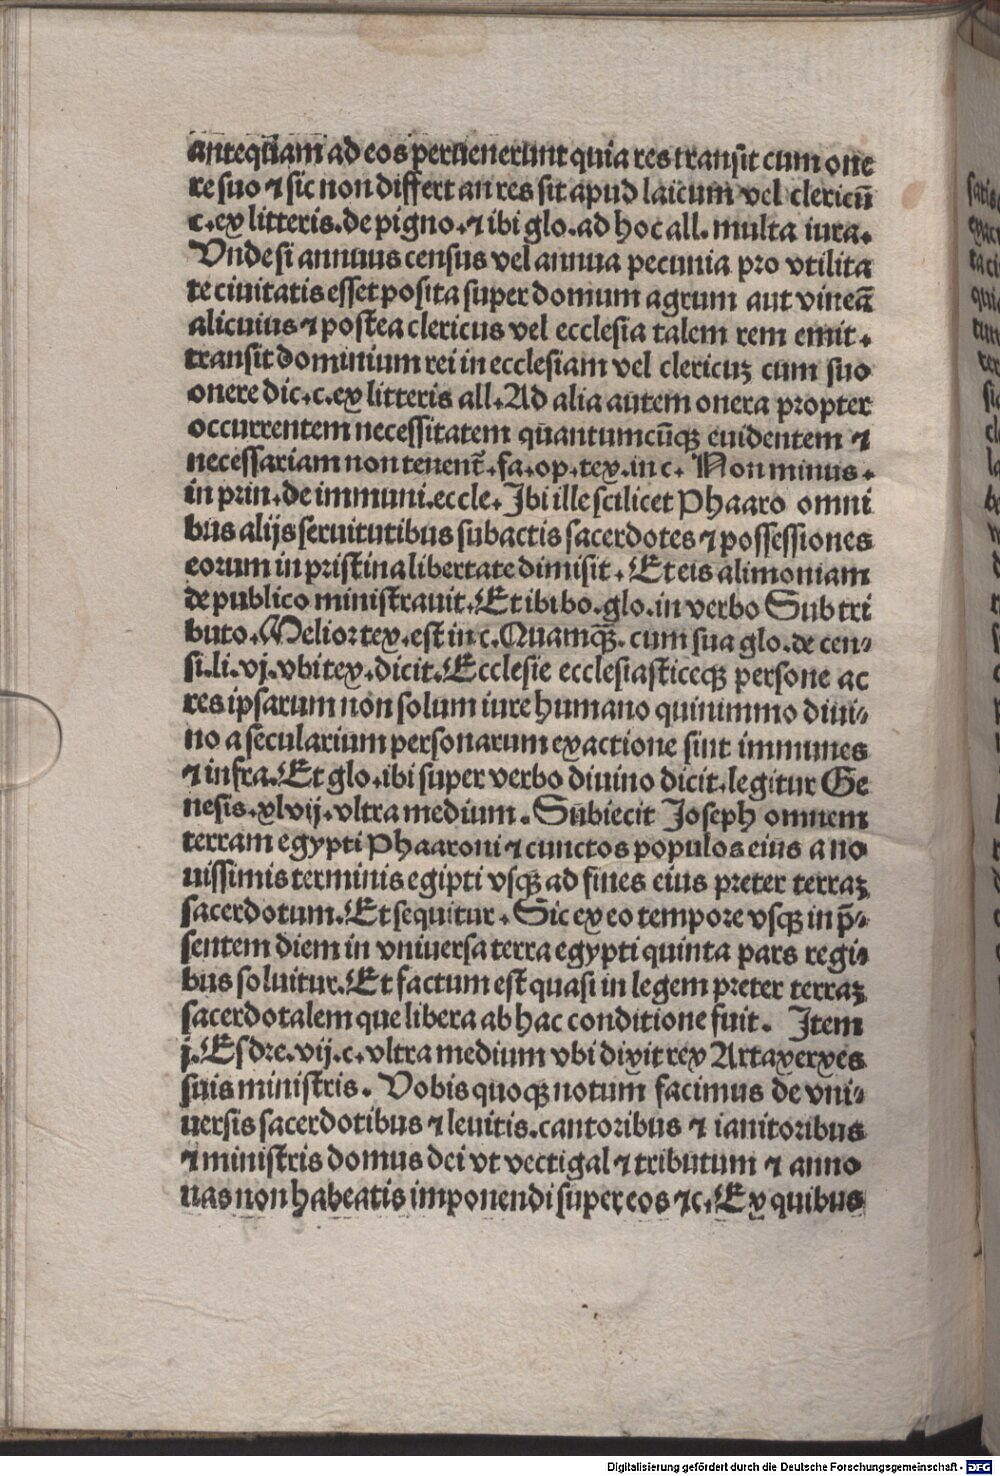 antequam ad eos peruenerunt quia res transit cum one
re suo ⁊ sic non differt an res sit apud laicum vel clericū
c. ex litteris. de pigno. ⁊ ibi glo. ad hoc all. multa iura.
Unde si annuus census vel annua pecunia pro vtilita
te ciuitatis esset posita super domum agrum aut vineā
alicuius ⁊ postea clericus vel ecclesia talem rem emit.
transit dominium rei in ecclesiam vel clericuꝫ cum suo
onere dic. c. ex litteris all. Ad alia autem onera propter
occurrentem necessitatem quantumcūqꝫ euidentem ⁊
necessariam non tenent̄. fa. op. tex. in c. Non minus.
in prin. de immuni. eccle. Ibi ille scilicet Phaaro omni
bus alijs seruitutibus subactis sacerdotes ⁊ possessiones
eorum in pristina libertate dimisit. Et eis alimoniam
de publico ministrauit. Et ibi bo. glo. in verbo Sub tri
buto. Melior tex. est in c. Quamqꝫ̄. cum sua glo. de cen⸗
si. li. vj. vbi tex. dicit. Ecclesie ecclesiasticeqꝫ persone ac
res ipsarum non solum iure humano quinimmo diui⸗
no a secularium personarum exactione sint immunes
⁊ infra. Et glo. ibi super verbo diuino dicit. legitur Ge
nesis. xlvij. vltra medium. Subiecit Joseph omnem
terram egypti Phaaroni ⁊ cunctos populos eius a no
uissimis terminis egipti vsqꝫ ad fines eius preter terraꝫ
sacerdotum. Et sequitur. Sic ex eo tempore vsqꝫ in p̄⸗
sentem diem in vniuersa terra egypti quinta pars regi⸗
bus soluitur. Et factum est quasi in legem preter terraꝫ
sacerdotalem que libera ab hac conditione fuit. Item
j. Esdre. vij. c. vltra medium vbi dixit rex Artaxerxes
suis ministris. Vobis quoqꝫ notum facimus de vni⸗
uersis sacerdotibus ⁊ leuitis. cantoribus ⁊ ianitoribus
⁊ ministris domus dei vt vectigal ⁊ tributum ⁊ anno
nas non habeatis imponendi super eos ⁊c. Ex quibus
Digitalisierung gefördert durch die Deutsche Forschungsgemeinschaft - DFG